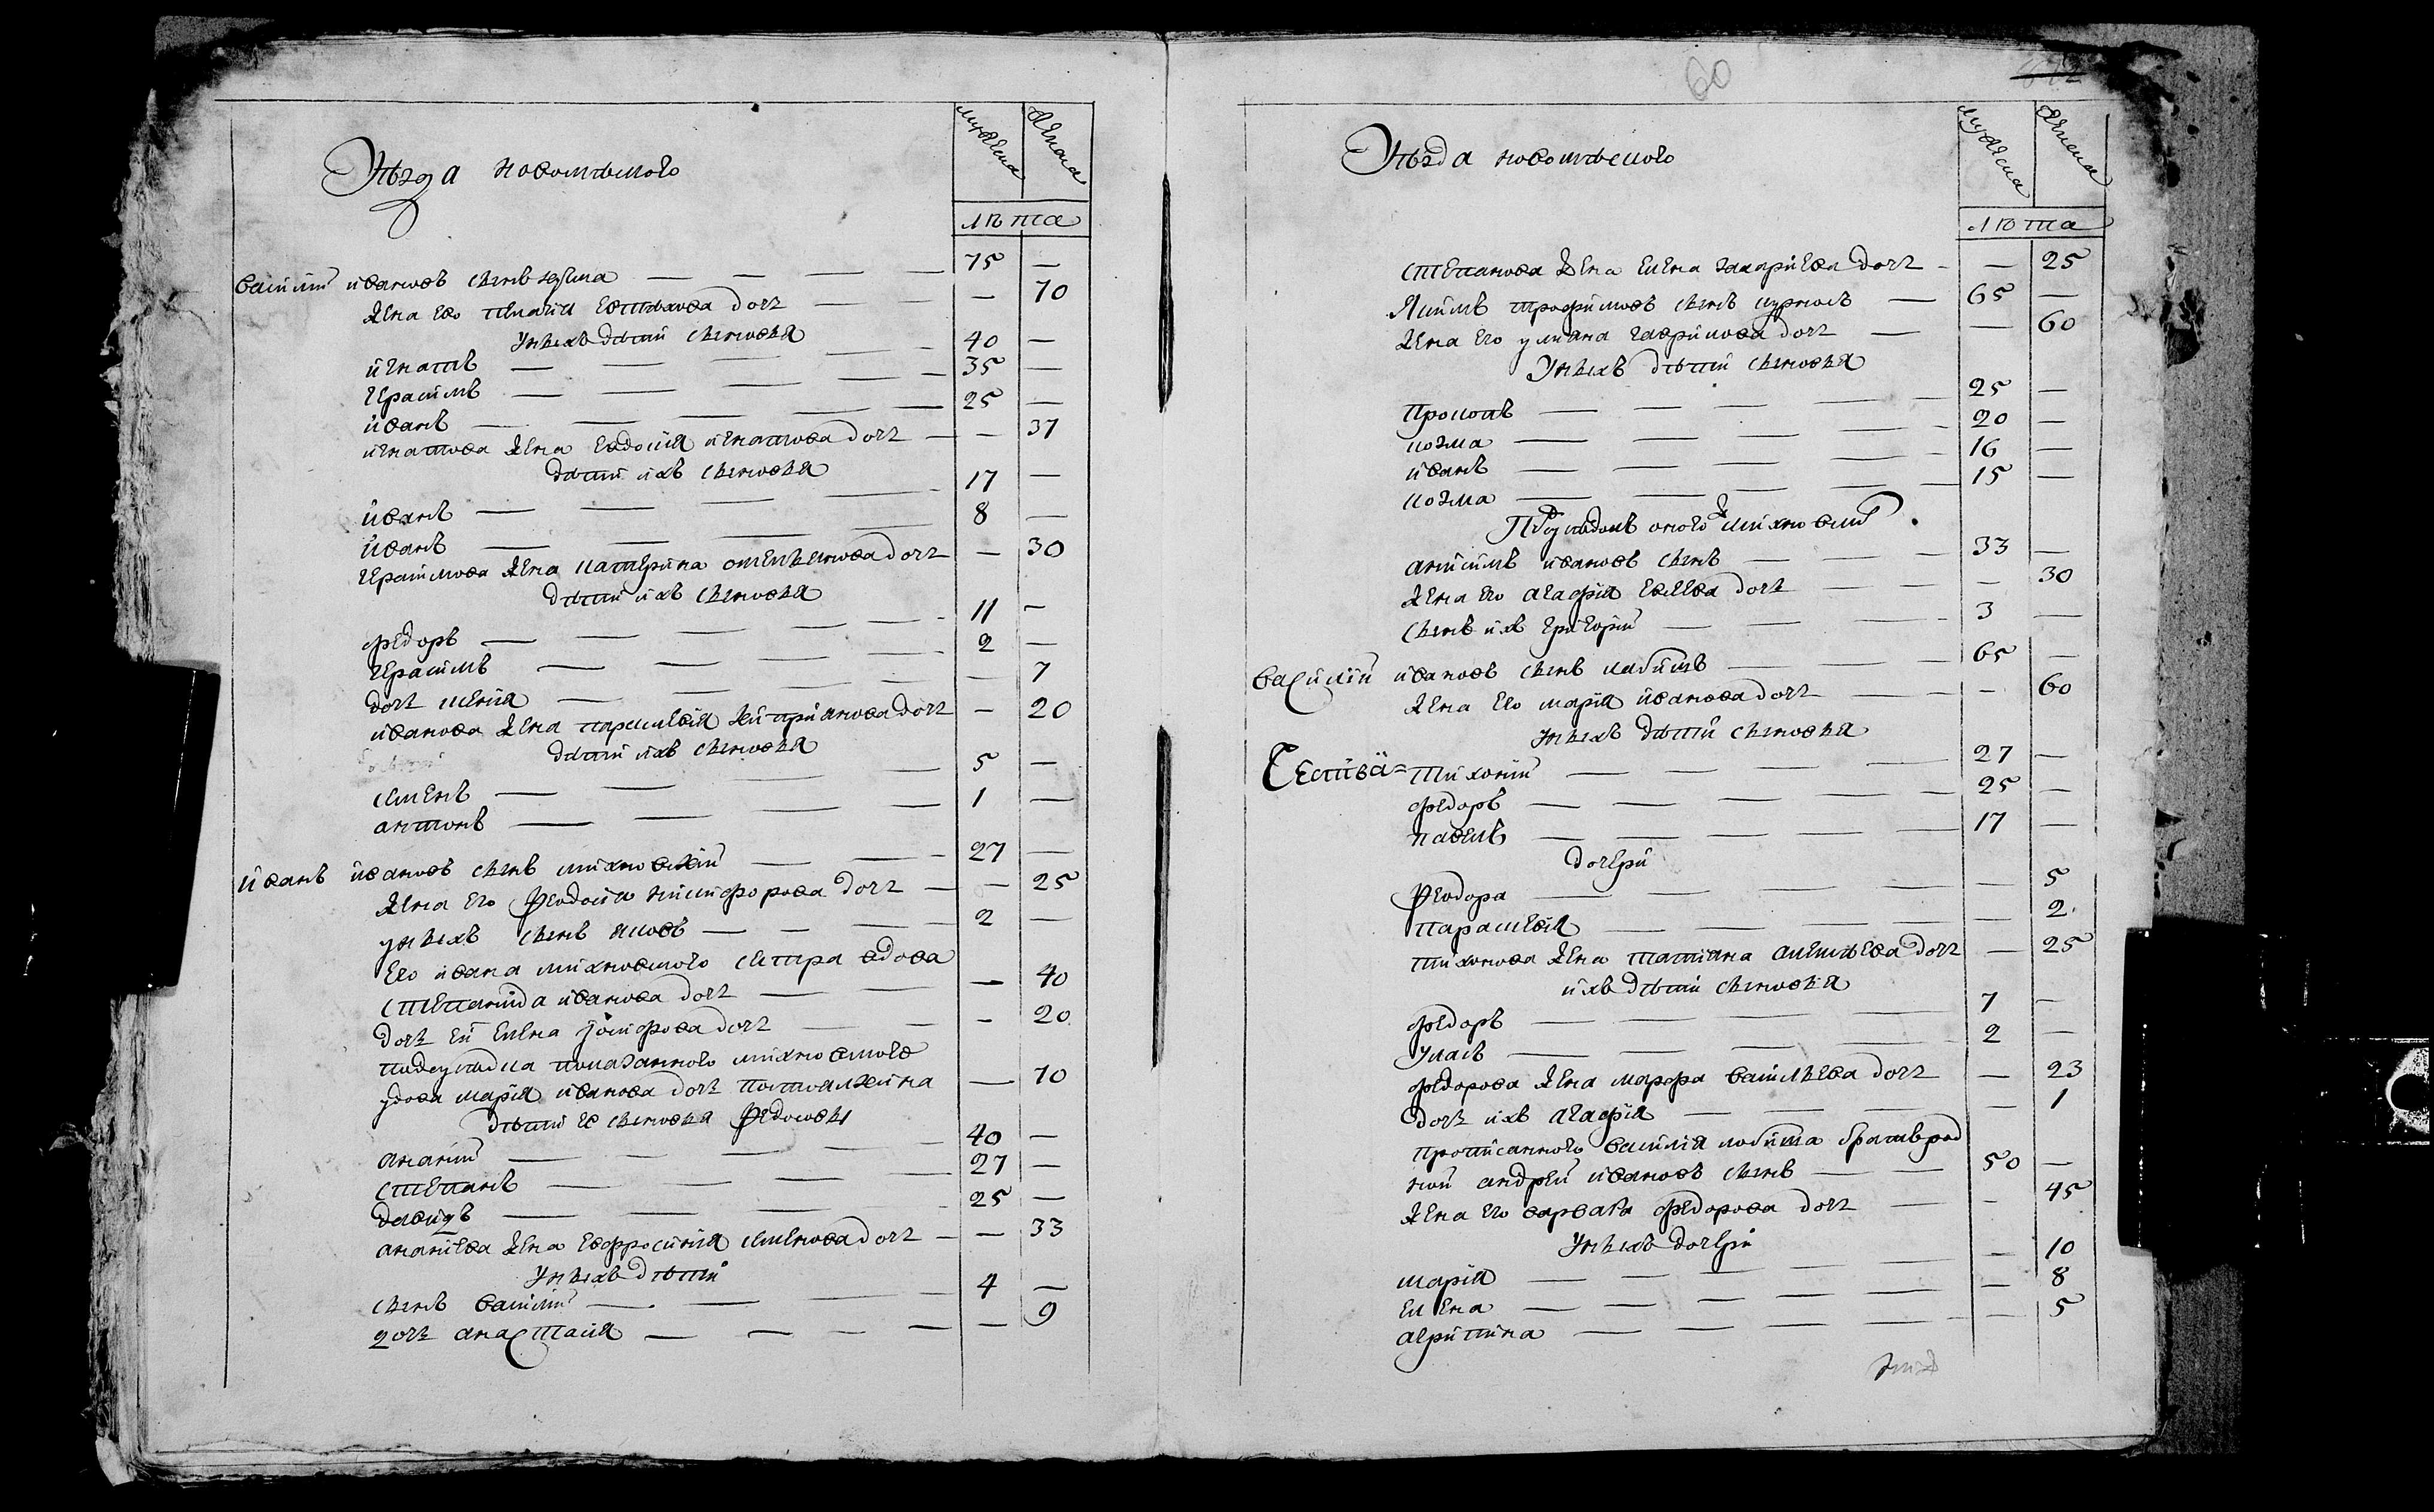 Уѣзда новомѣского
мужеска
женска
лѣта
василий ивановъ сынъ 75 —
жена ево пелагия евтихова дочь — 70
У нихъ дѣти сыновья
игнатъ 40 —
герасимъ 35 —
иванъ 25 —
игнатова жена евдокия игнатова дочь — 37
дѣти ихъ сыновья
иванъ 17 —
иванъ 8 —
герасимова жена катерина дочь — 30
дѣти ихъ сыновья
федоръ 11 —
герасимъ 2 —
дочь — 7
иванова жена парасковия киприянова дочь — 20
дѣти ихъ сыновья
семенъ 5 —
антонъ 1 —
иванъ ивановъ сынъ михновский 27 —
жена его феодосия никифорова дочь — 25
у нихъ сынъ яковъ 2 —
Его ивана михновского сестра вдова
степанида иванова дочь — 40
дочь ей елена иосифова дочь — 20
подсуседка показанного михновского
удова мария иванова дочь — 70
дѣти ее сыновья федосовы
ананий 40 —
степанъ 27 —
давидъ 25 —
ананиева жена евфросиния семенова дочь — 33
У нихъ дѣти
сынъ василий 4 —
дочь анастасия — 9
60
Уѣзда новомѣского
мужеска
женска
лѣта
степанова жена елена захариева дочь — 25
якимъ трофимовъ сынъ 65 —
жена его улиана гаврилова дочь — 60
У нихъ дѣти сыновья
прокопъ 25 —
козма 20 —
иванъ 16 —
козма 15 —
оного ж михновски
анисимъ ивановъ сынъ 33 —
жена его агафия дочь — 30
сынъ ихъ григорий 3 —
василий ивановъ сынъ 65 —
жена его мария иванова дочь — 60
У нихъ дѣти сыновья
тихоний 27 —
федоръ 25 —
павелъ 17 —
дочери
феодора — 5
парасковия — 2
тихонова жена татияна алексѣева дочь — 25
ихъ дѣти сыновья
федоръ 7 —
уласъ 2 —
федорова жена марфа василѣева дочь — 23
дочь ихъ агафия — 1
прописанного василия братъ род
ной андрей ивановъ сынъ 50 —
жена его варвара федорова дочь — 45
У нихъ дочери
мария — 10
елена — 8
агрипина — 5